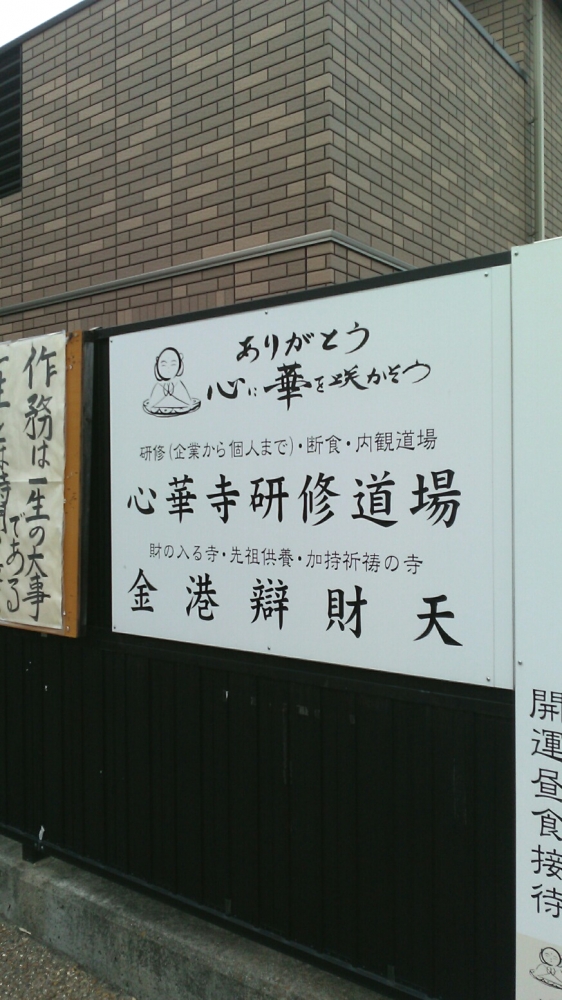 ありがとう
心に華を咲かそう
研修(企業から個人まで)・断食・内観道場
心華寺研修道場
財の入る寺・先祖供養・加持祈祷の寺
金港辯財天
作務は一生の大事
である
開運昼食接待